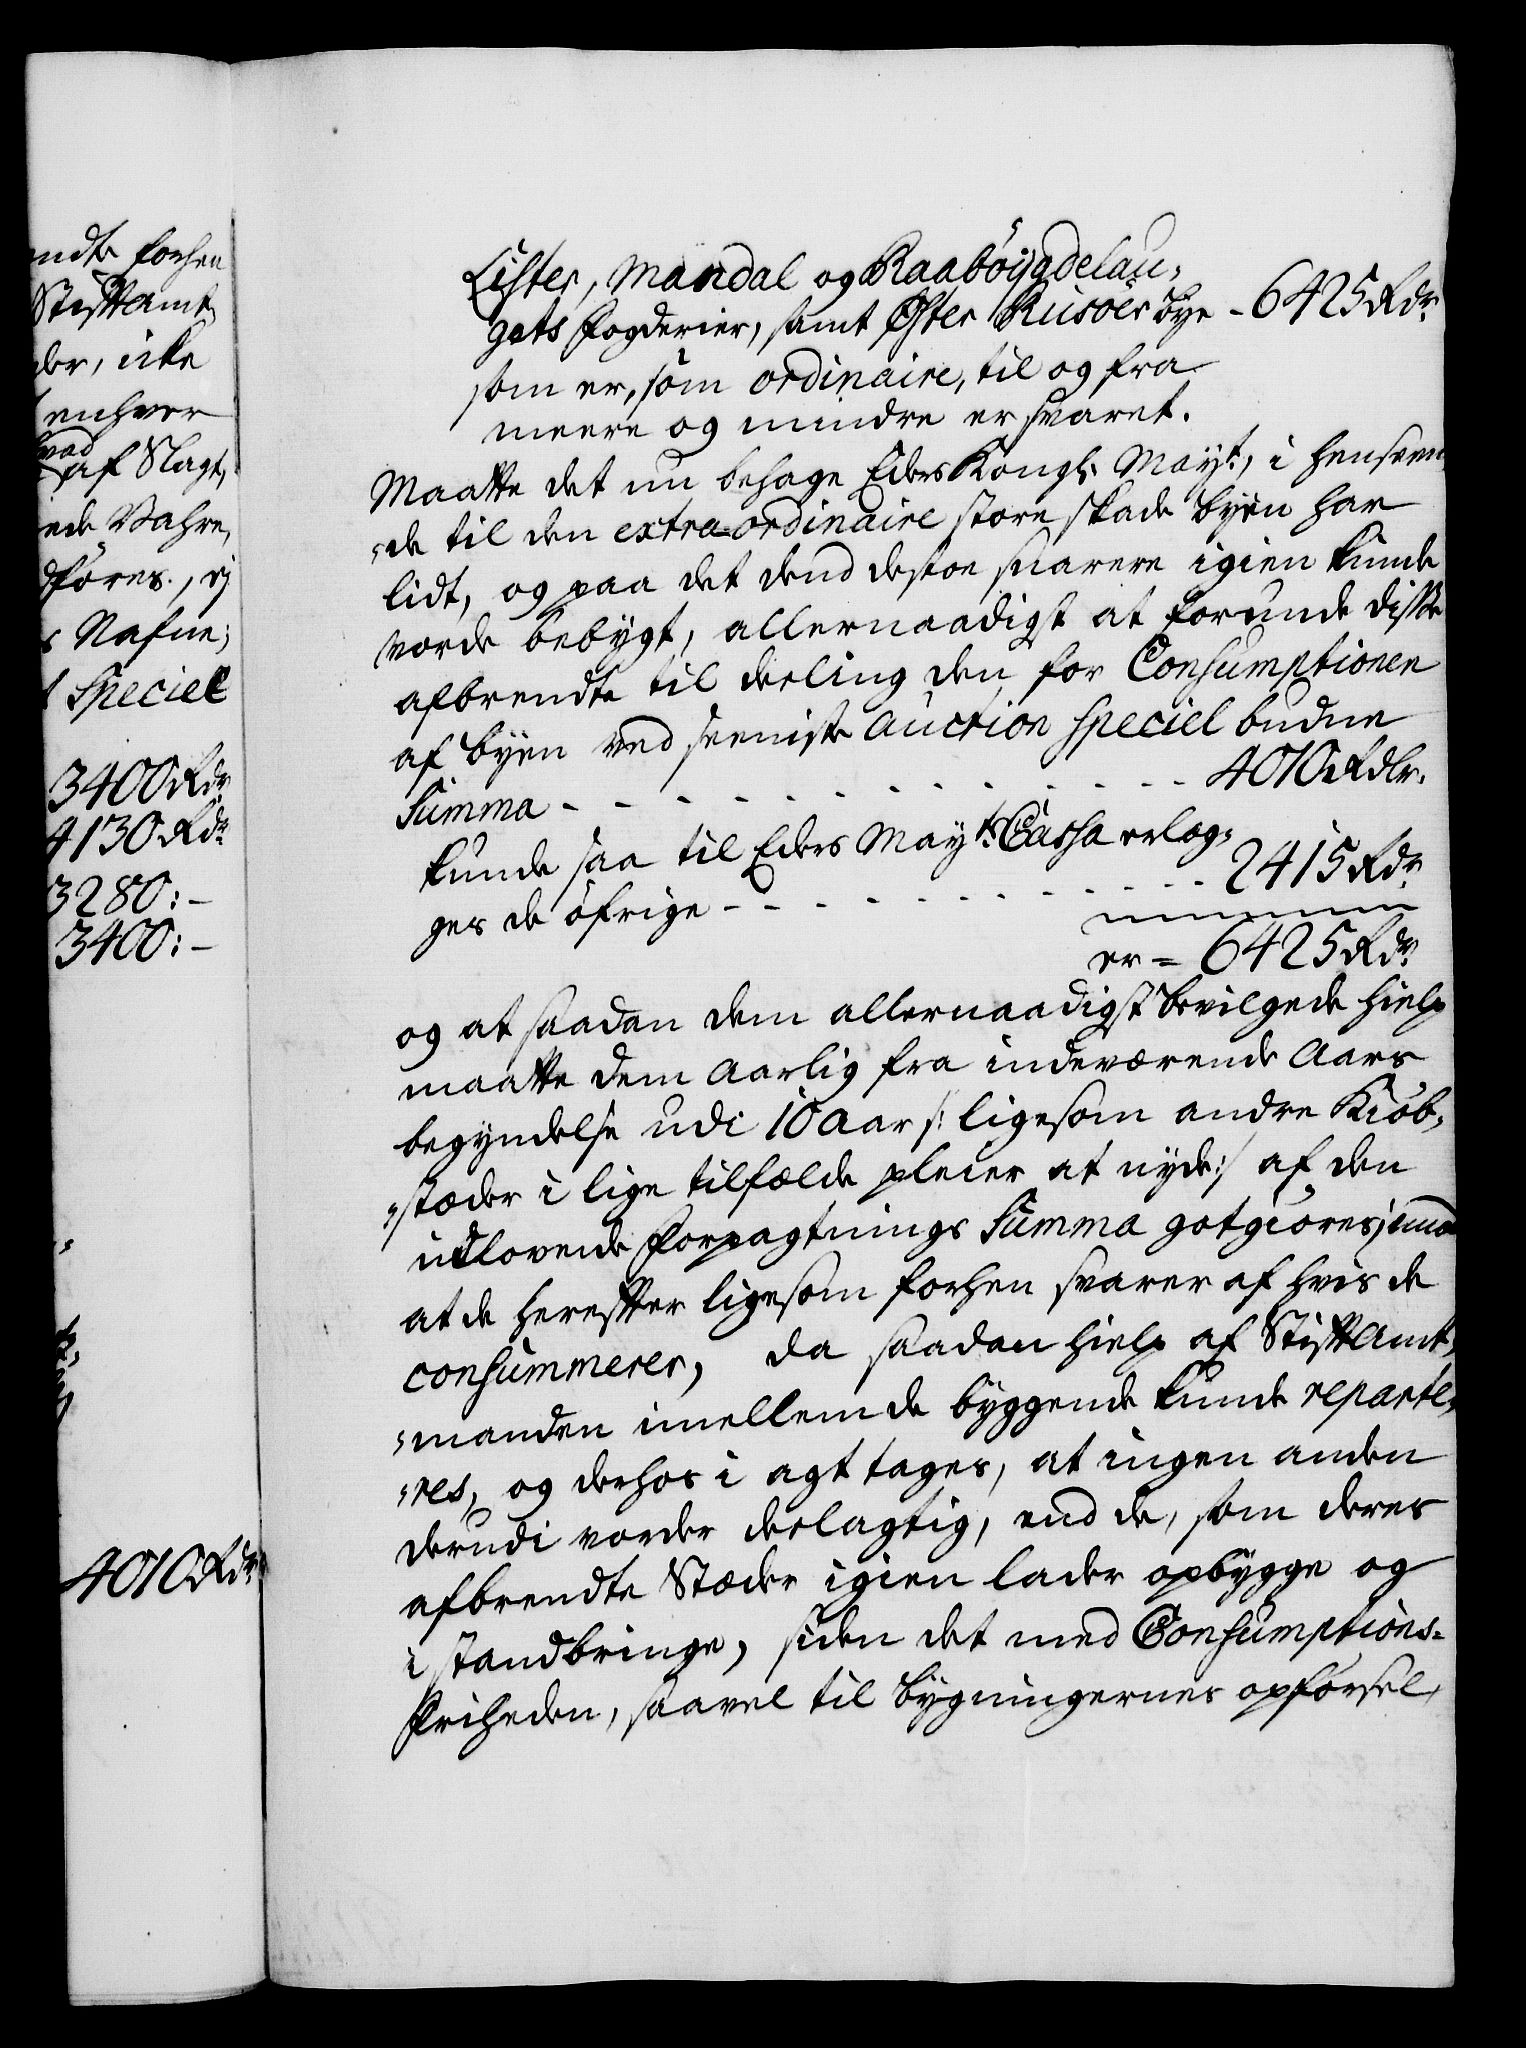 ndte forhen
Stiftamt,
der, icke
enhver
hvad
af Slagt,
ede Vahre,
dføres., ej
s Nafne;
Speciel
3400 Rdr
4130 Rdr
3280:-
3400:-
4010 Rdr
Lister, Mandal og Raabøijgdelau,
gets fogderier, samt Øster Riisøers Bye - 6425 Rdr
som er, som ordinaire, til og fra
meere og mindre er svaret.
Maatte det nu behage Eders Kongl. Mayt, i henseen,
„de til den extraordinaire store skade byen har
lidt, og paa det dend destoe snarere igien kunde
vorde bebygt, allernaadigst at forunde disse
afbrendte til deeling den for Consumptionen
af byen ved seeniste Auction speciel budne
Summa - - - - - - - - - - 4010 Rdlr.
kunde saa til Eders Mayts Cassa erlæg,
ges de øfrige - - - - - - - - - 2415 Rdr
er = 6425 Rdr
og at saadan dem allernaadigst bevilgede hielp
maatte dem aarlig fra indeværende Aars
begyndelse udi 10 aar /: ligesom andre Kiøb,
„stæder i lige tilfælde pleier at nyde :/ af den
udlovende forpagtnings Summa gotgiøres, imod
at de herefter ligesom forhen svarer af hvis de
consummerer, da saadan hielp af Stiftamt,
„manden imellem de byggende kunde reparte,
„res, og derhos i agt tages, at ingen anden
derudi vorder deelagtig, end de, som deres
afbrendte Stæder igien lader opbygge og
i standbringe, siden det med Consumptions-
Friheden, saavel til bygningernes opførsel,